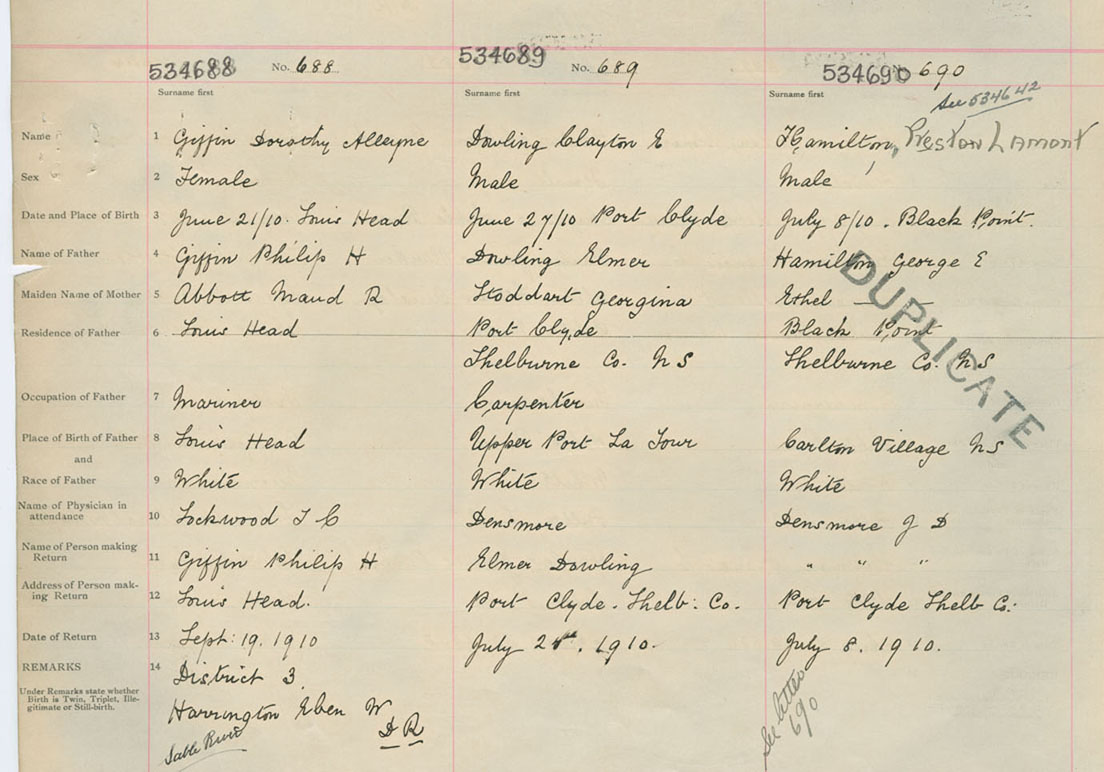 534688 No. 688
534689 No. 689
534690 690
See 534642
Surname first Surname first Surname first
Name 1 Giffin Dorothy Alleyne Dowling Clayton E Hamilton, Preston Lamont
Sex 2 Female Male Male
Date and Place of Birth 3 June 21/10. Louis Head June 27/10 Port Clyde July 8/10. Black Point.
Name of Father 4 Giffin Philip H Dowling Elmer Hamilton George E
Maiden Name of Mother 5 Abbott Maud R Stoddart Georgina Ethel —
Residence of Father 6 Louis Head Port Clyde Black Point
Shelburne Co. NS Shelburne Co. NS
DUPLICATE
Occupation of Father 7 Mariner Carpenter
Place of Birth of Father 8 Louis Head Upper Port La Tour Carlton Village NS
and
Race of Father 9 White White White
Name of Physician in
attendance 10 Lockwood T C Densmore Densmore J D
Name of Person making
Return 11 Giffin Philip H Elmer Dowling " " "
Address of Person mak-
ing Return 12 Louis Head. Port Clyde. Shelb: Co. Port Clyde Shelb Co:
Date of Return 13 Sept: 19. 1910 July 1910. July 8. 1910.
REMARKS 14 District 3
Under Remarks state whether
Birth is Twin, Triplet, Ille-
gitimate or Still-birth.
Harrington Eben W
D R
Sable River
See letter
690